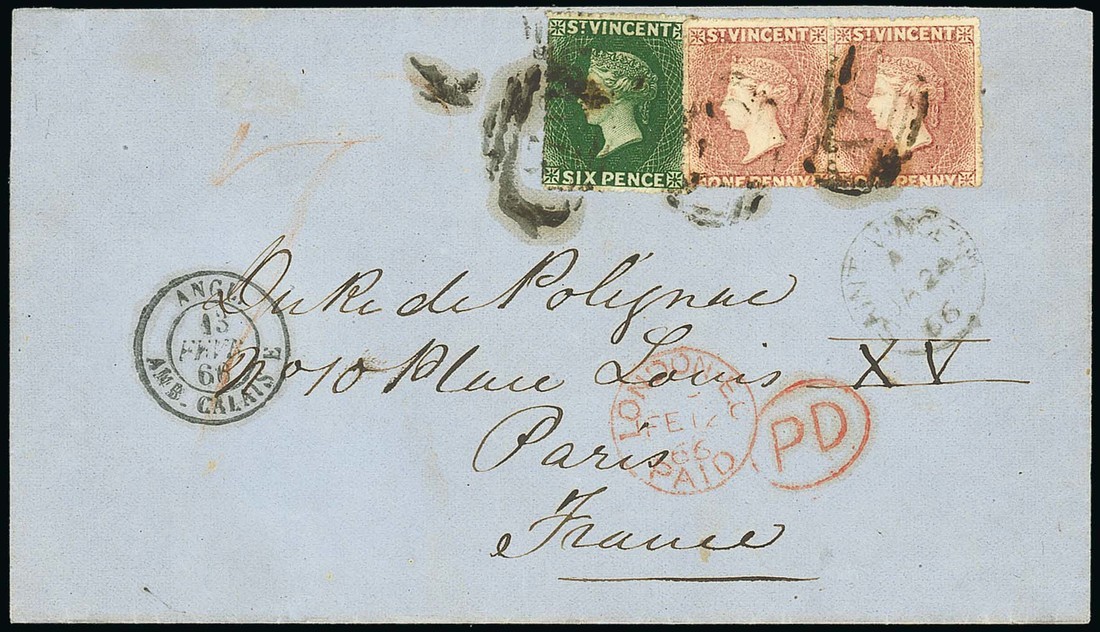 ST VINCENT
SIX PENCE
ST VINCENT
ONE PENNY
ST VINCENT
PENNY
Duke de Polignac
No 10 Place Louis XV
Paris
France
ANGL.
13
FEVR
66
AMB. CALAIS E
LONDON E.C
FE 12
66
PAID
PD
SAINT VINCENT
A
JA 24
66